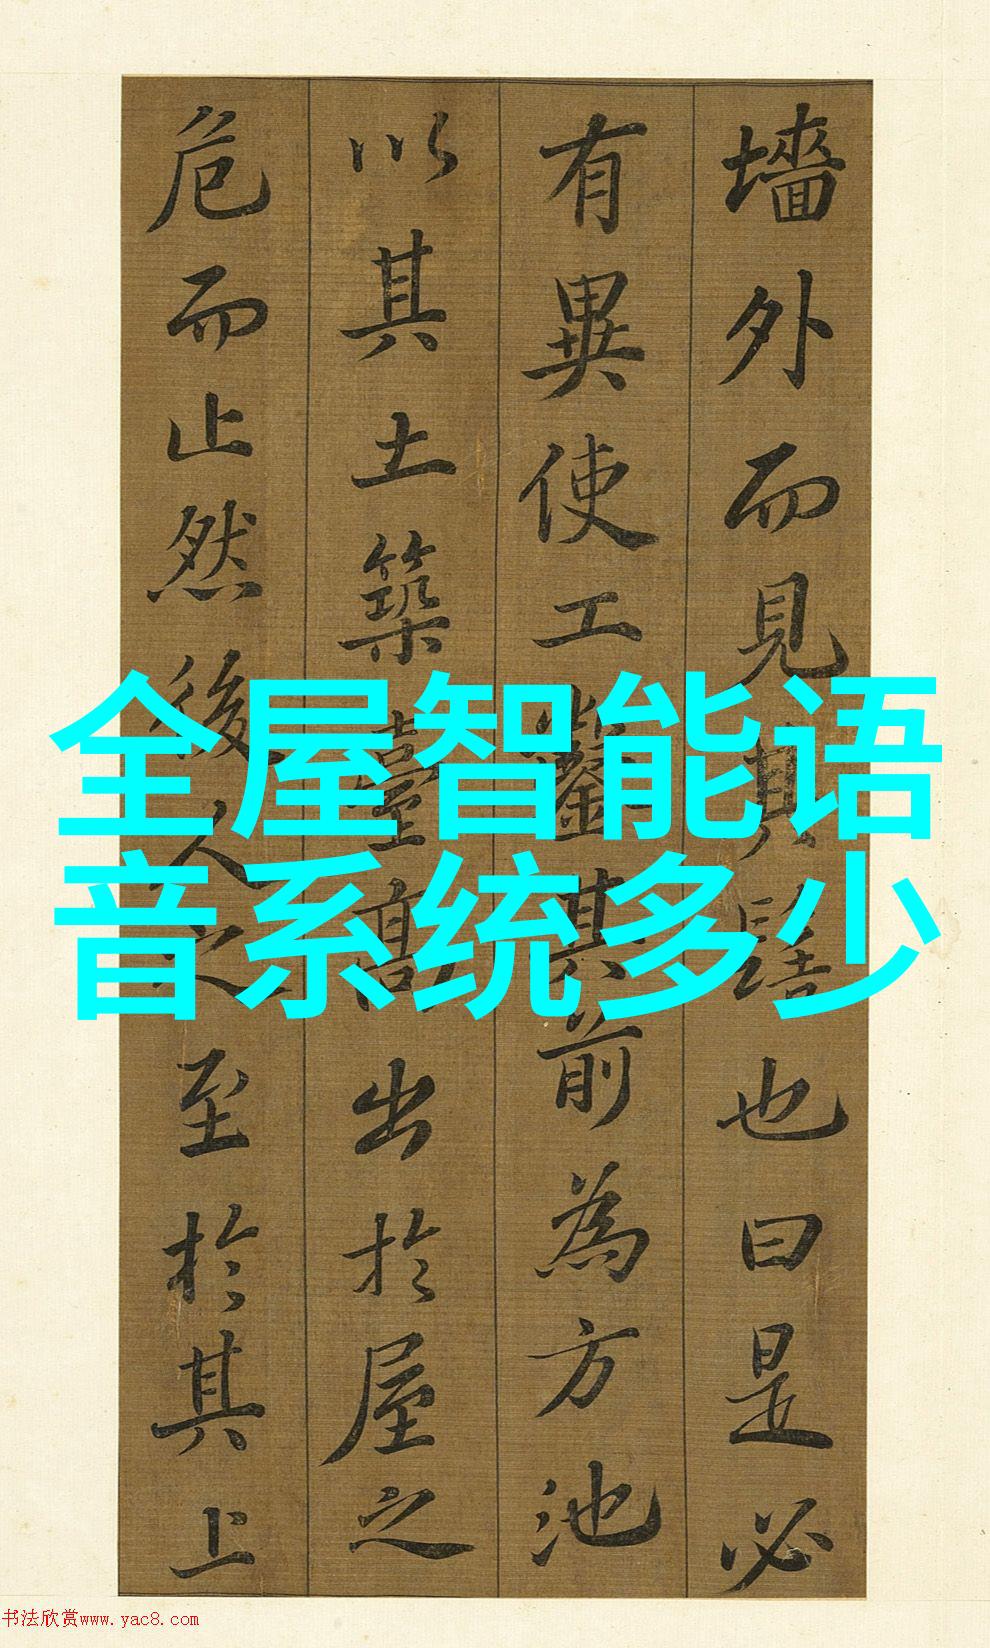 墻外而見其髻也曰是必
有異使工鑿其前為方池
以其土築臺高出於屋之
危而止然後人之至於其上
全屋智能语
音系统多少
书法欣赏www.yac8.com